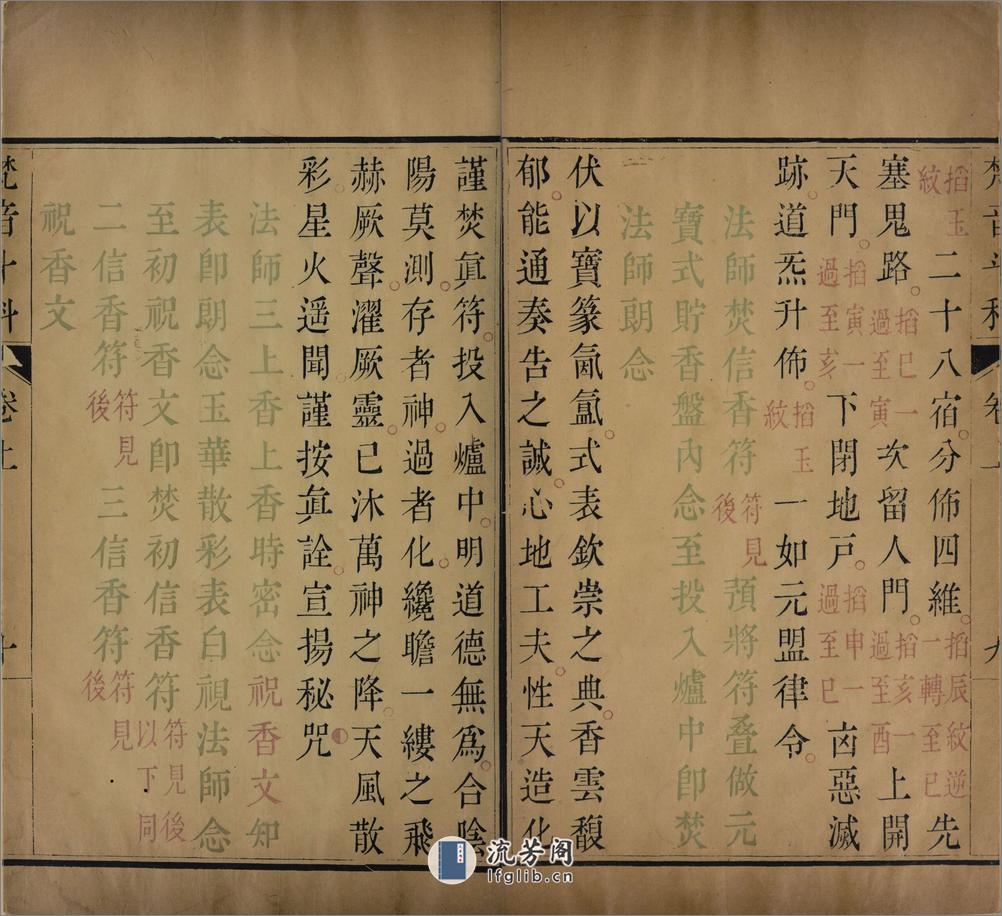 梵音斗科 卷上 九
搯玉紋 二十八宿。分佈四維。搯辰紋逆一轉至巳 先
塞鬼路。搯巳一過至寅 次留人門。搯亥一過至酉 上開
天門。搯寅一過至亥 下閉地戶。搯申一過至巳 㐫惡滅
跡。道炁升佈。搯玉紋 一如元盟律令。
法師焚信香符 符見後 預將符叠做元
寶式貯香盤內念至投入爐中卽焚
法師朗念
伏以寶篆氤氳。式表欽崇之典。香雲馥
郁。能通奏告之誠。心地工夫。性天造化
謹焚眞符。投入爐中。明道德無爲。合陰
陽莫測。存者神。過者化。纔瞻一縷之飛
赫厥聲。濯厥靈。已沐萬神之降。天風散
彩。星火遥聞。謹按眞詮。宣揚秘咒
法師三上香上香時密念祝香文知
表卽朗念玉華散彩表白視法師念
至初祝香文卽焚初信香符 符見後以下同
二信香符 符見後 三信香符 符見後
祝香文
梵音斗科 卷上 十
流芳阁
lfglib.cn